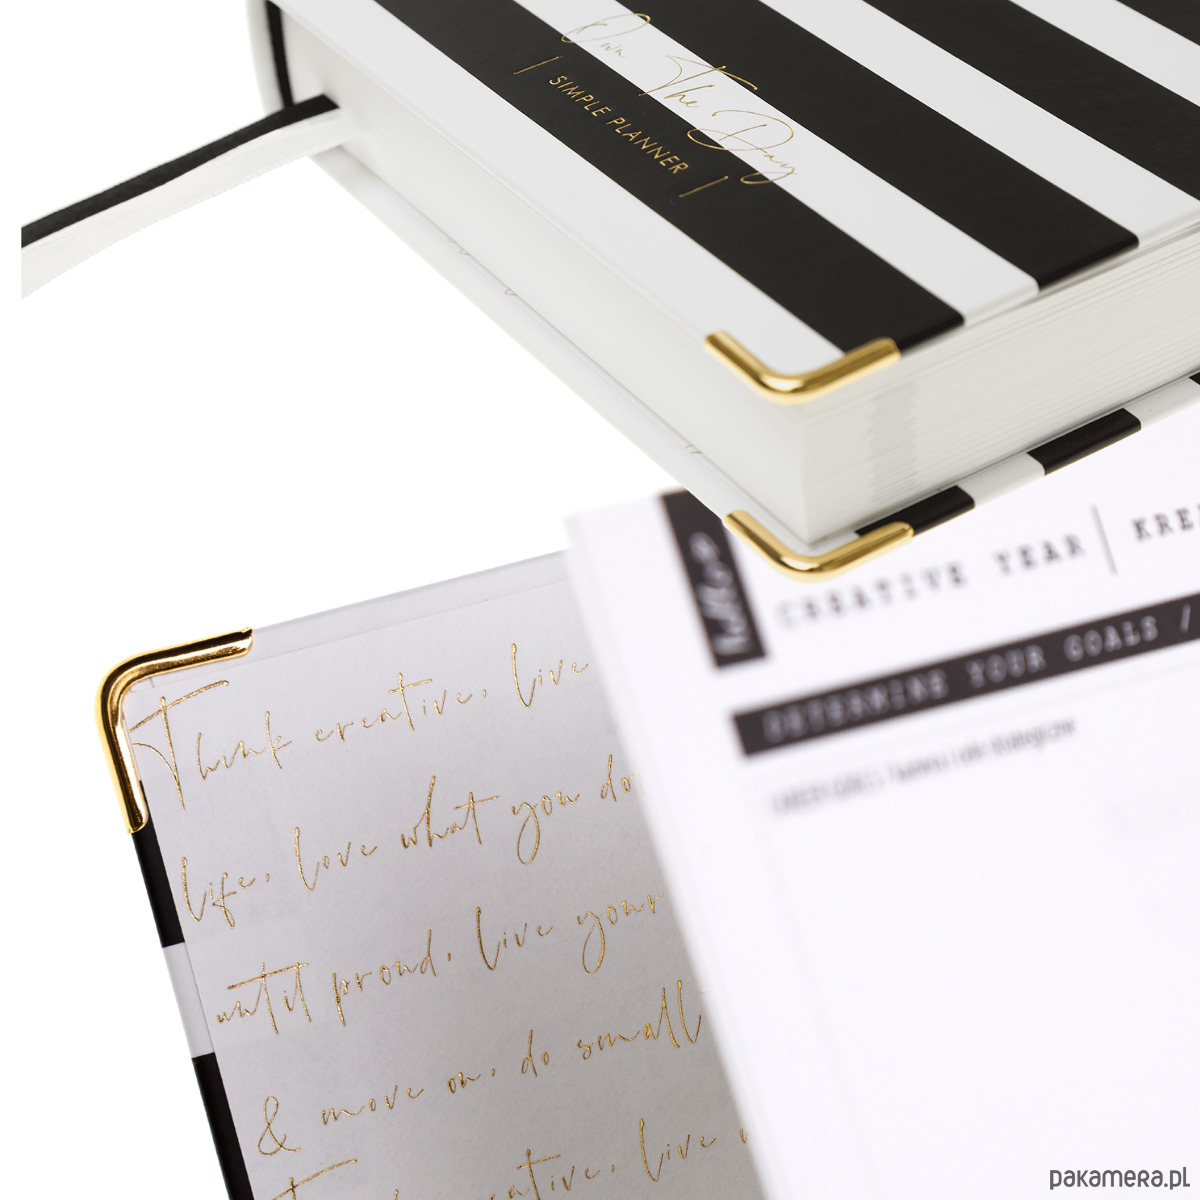 Own The Day
| SIMPLE PLANNER |
CREATIVE YEAR | KRE
DETERMINE YOUR GOALS /
Think creative, live
life, love what you do
until proud, live your
& move on, do small
Think creative, live
pakamera.pl